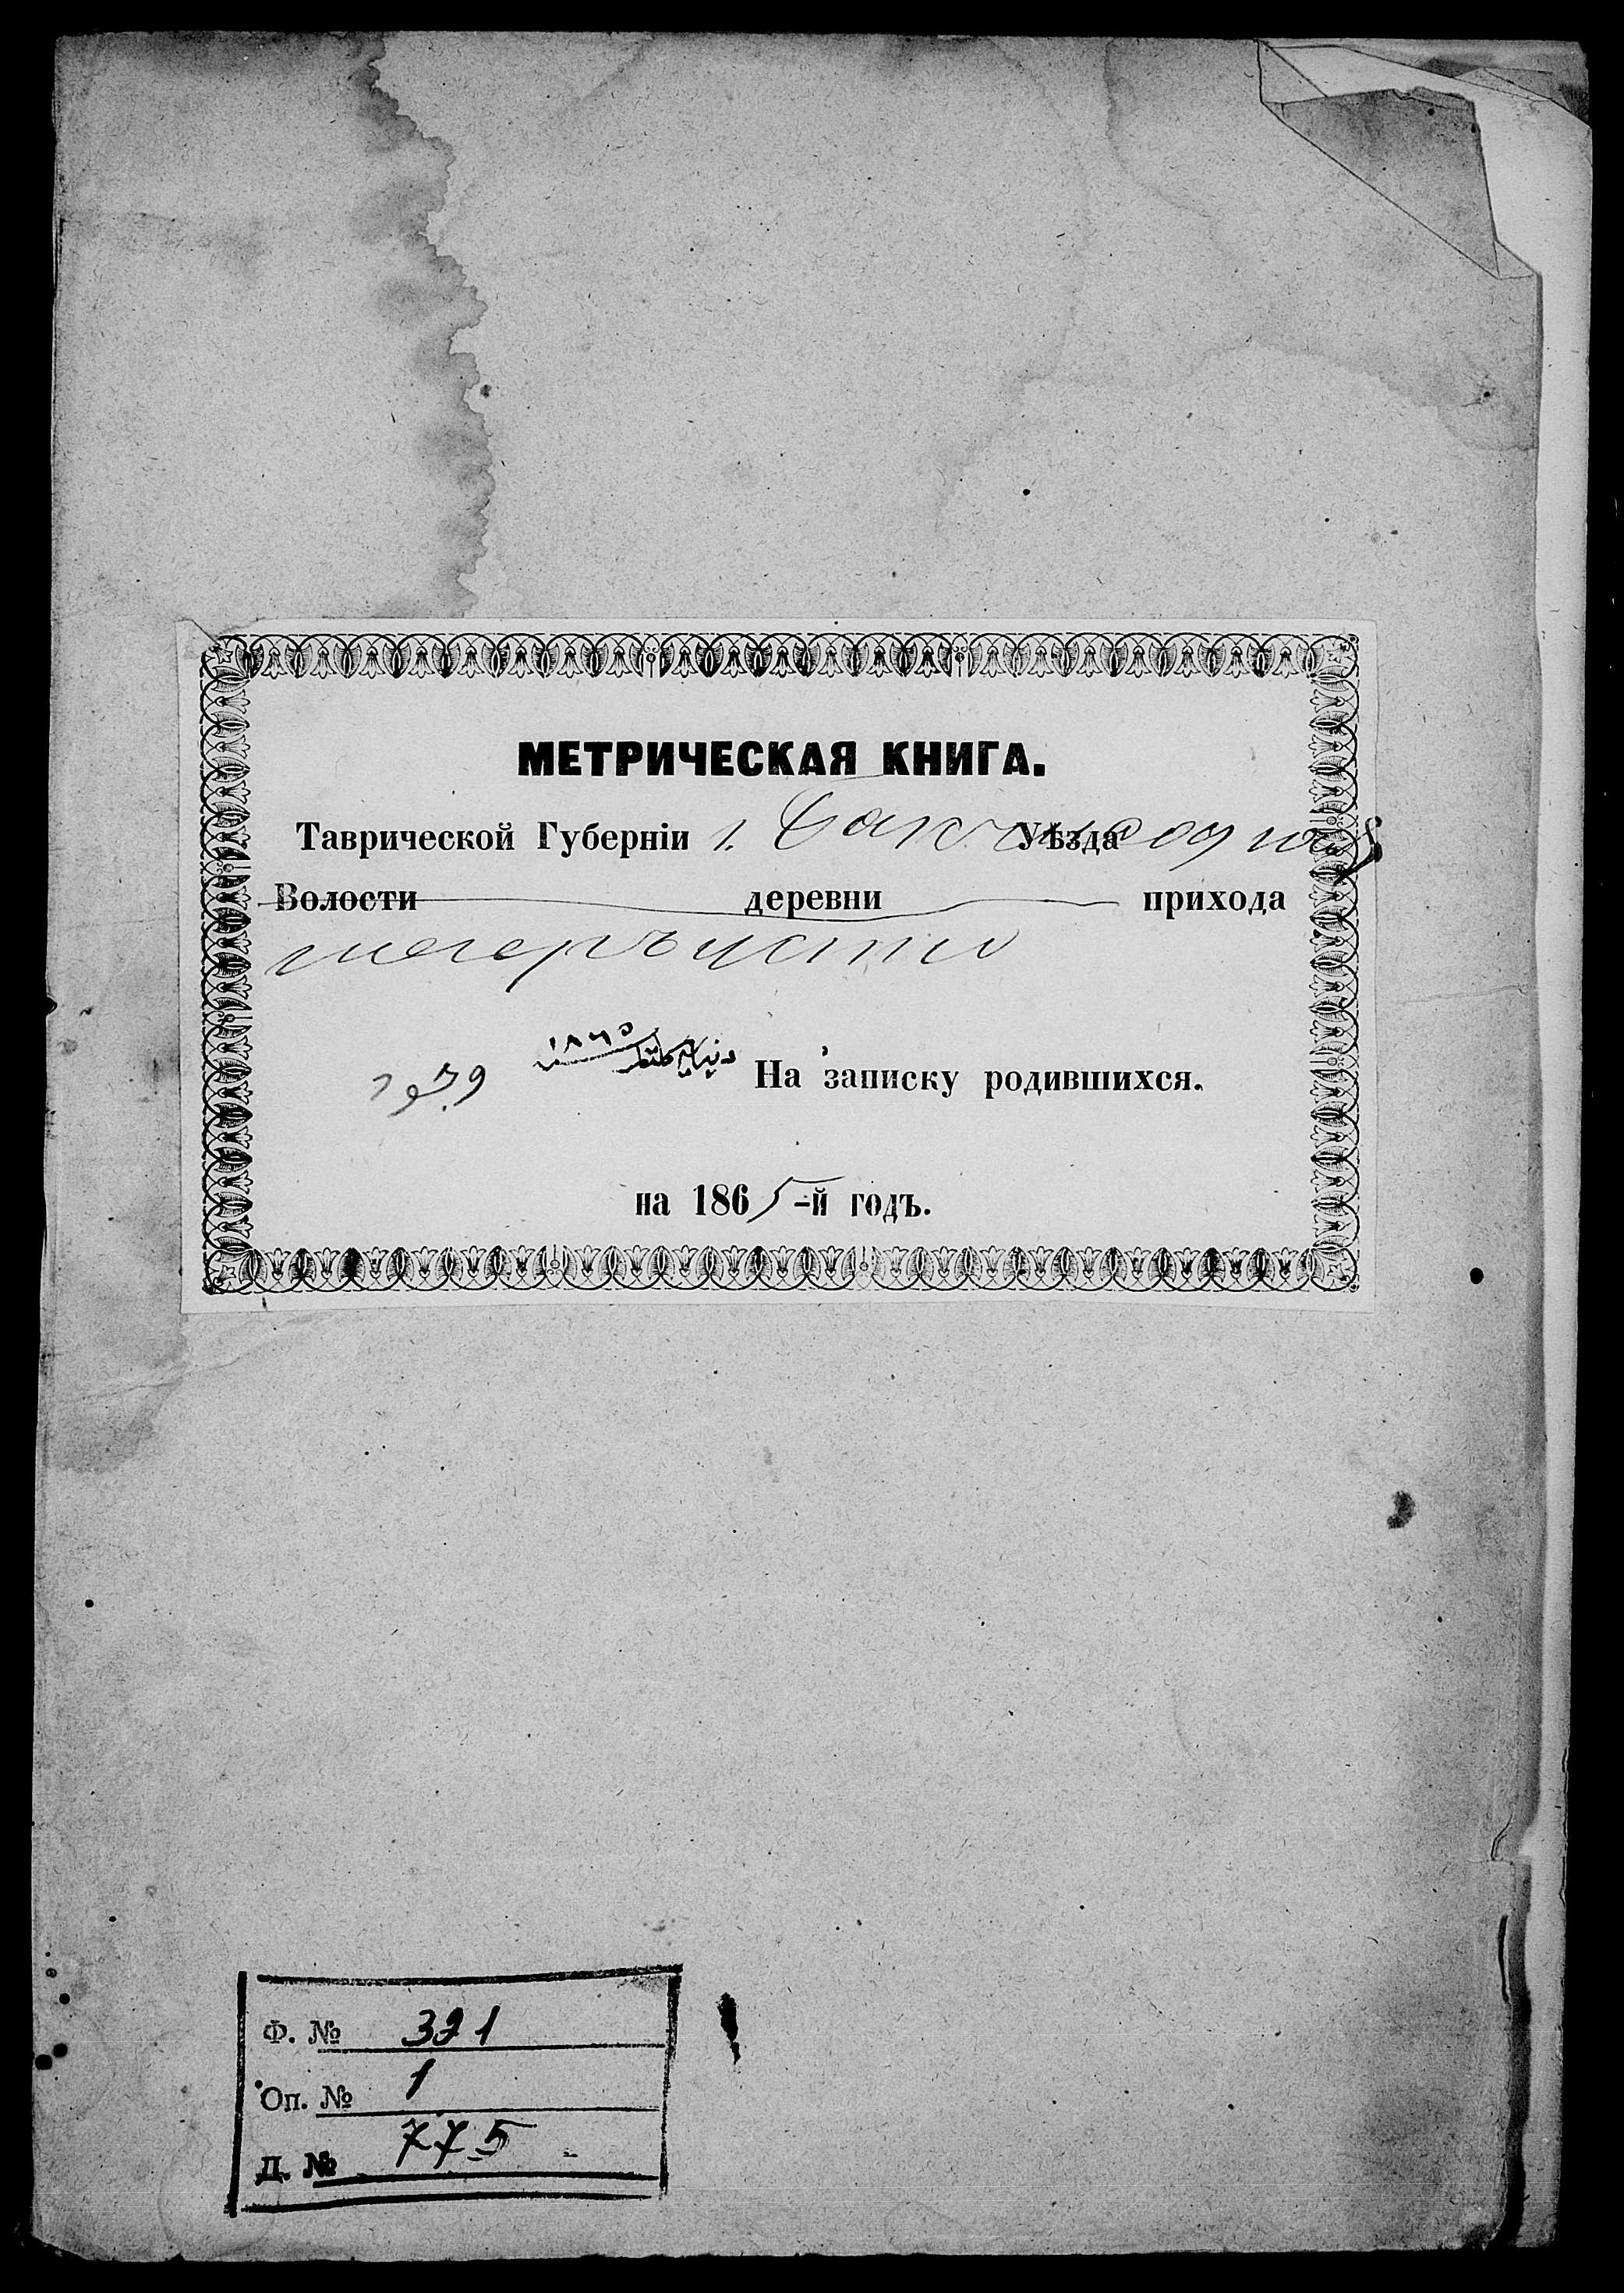 МЕТРИЧЕСКАЯ КНИГА.
Таврической Губерніи г. Уѣзда
Волости деревни прихода
١٨٦٥
На записку родившихся.
на 1865-й годъ.
Ф. № 321
Оп. № 1
Д. № 775